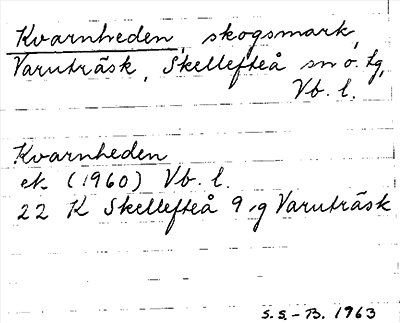 Kvarnheden, skogsmark,
Varuträsk, Skellefteå sn o. tg,
Vb. l.
Kvarnheden
ek. (1960) Vb. l.
22 K Skellefteå 9 g Varuträsk
S.S.-B. 1963